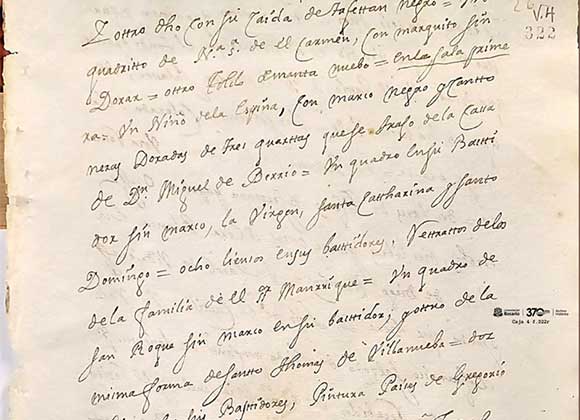 Y ottro dho con su Caida de tafettan negro =
quadritto de N.ª S.ª de el Carmen, con marquito sin
Dorar = ottro toldo de manta nuebo = en la sala prime
ra = Un Niño de la Espina, con marco negro y cantto
neras Doradas de tres quarttas que se trajo de la Cassa
de Dn. Miguel de Berrio = Un quadro en su Basti
dor sin marco, la Virgen, santa Cattharina y santo
Domingo = ocho lienzos en sus bastidores, Retrattos de los
de la familia de el Sr. Manrrique = Un quadro de
san Roque sin marco en su bastidor, y ottro de la
misma forma de santto thomas de Villanueba = dor
en sus Bastidores, Pintura Paises de Gregorio
V.H
322
Rosario
370
Caja 4 f.322r